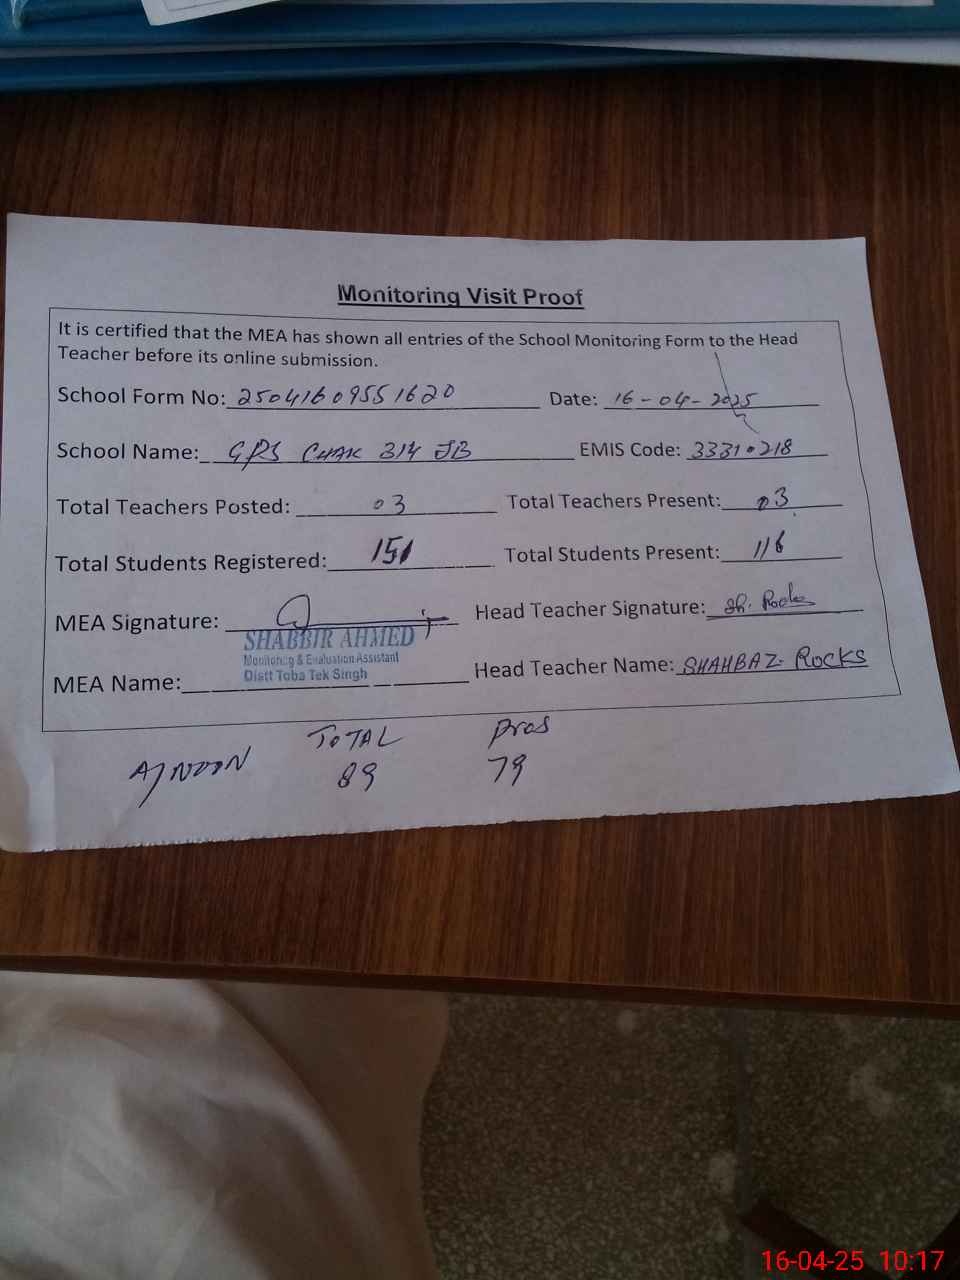 Monitoring Visit Proof
It is certified that the MEA has shown all entries of the School Monitoring Form to the Head
Teacher before its online submission.
School Form No: 25041609551620 Date: 16-04-2025
School Name: GPS CHAK 314 JB EMIS Code: 33310218
Total Teachers Posted: 03 Total Teachers Present: 03
Total Students Registered: 151 Total Students Present: 116
MEA Signature: Head Teacher Signature: Sh. Rocks
SHABBIR AHMED
Monitoring & Evaluation Assistant
Distt Toba Tek Singh
MEA Name: Head Teacher Name: SHAHBAZ ROCKS
TOTAL Pres
A/NOON 89 79
16-04-25 10:17